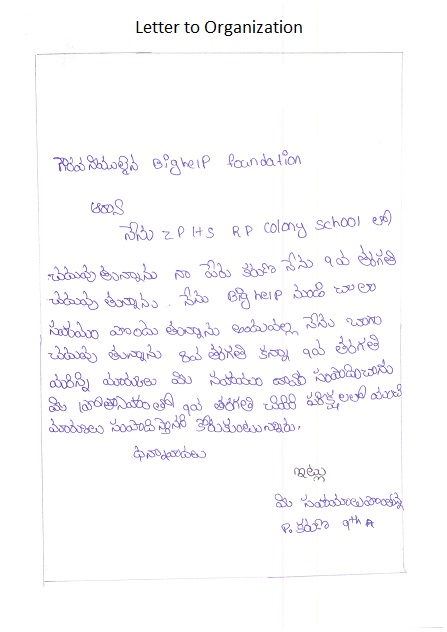 Letter to Organization
గౌరవనీయులైన Bighelp foundation
నేను ZPHS RP Colony School లో
చదువుతున్నాను నా పేరు కరుణ నేను 9వ తరగతి
చదువుతున్నాను. నేను Bighelp నుండి చాలా
సహాయం పొందుతున్నాను అందువల్ల నేను బాగా
చదువుతున్నాను 8వ తరగతి కన్నా 9వ తరగతి
మీ సహాయం ద్వారా సంపాదించాను
మీ ప్రోత్సాహంతో 9వ తరగతి చివరి పరీక్షలలో మంచి
మార్కులు కోరుకుంటున్నాను.
ధన్యవాదలు
ఇట్లు
మీ
P. కరుణ 9th A